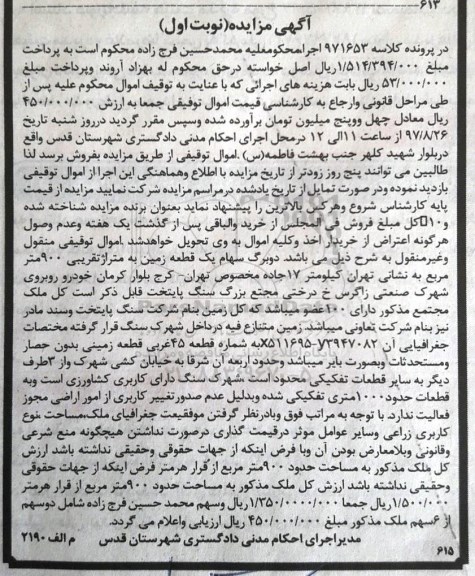 ۶۱۳
آگهی مزایده(نوبت اول)
در پرونده کلاسه ۹۷۱۶۵۳ اجرا،محکومعلیه محمدحسین فرج زاده محکوم است به پرداخت
مبلغ ۱/۵۱۴/۳۹۴/۰۰۰ریال اصل خواسته درحق محکوم له بهزاد آروند وپرداخت مبلغ
۵۳/۰۰۰/۰۰۰ ریال بابت هزینه های اجرائی که با عنایت به توقیف اموال محکوم علیه پس از
طی مراحل قانونی وارجاع به کارشناسی قیمت اموال توقیفی جمعا به ارزش ۴۵۰/۰۰۰/۰۰۰
ریال معادل چهل وپنج میلیون تومان برآورده شده وسپس مقرر گردید درروز شنبه تاریخ
۹۷/۸/۲۶ از ساعت ۱۱الی ۱۲ درمحل اجرای احکام مدنی دادگستری شهرستان قدس واقع
دربلوار شهید کلهر جنب بهشت فاطمه(س) .اموال توقیفی از طریق مزایده بفروش برسد لذا
طالبین می توانند پنج روز زودتر از تاریخ مزایده با اطلاع وهماهنگی این اجرا از اموال توقیفی
بازدید نموده ودر صورت تمایل از تاریخ یادشده درمراسم مزایده شرکت نمایید مزایده از قیمت
پایه کارشناس شروع وهرکس بالاترین را پیشنهاد نماید بعنوان برنده مزایده شناخته شده
و۱۰کل مبلغ فروش فی المجلس از خرید والباقی پس از گذشت یک هفته وعدم وصول
هرگونه اعتراض از خریدار اخذ وکلیه اموال به وی تحویل خواهدشد .اموال توقیفی منقول
وغیرمنقول به شرح ذیل می باشد. دوبرگ سهام یک قطعه زمین به متراژتقریبی ۹۰۰متر
مربع به نشانی تهران کیلومتر ۱۷جاده مخصوص تهران- کرج بلوار کرمان خودرو روبروی
شهرک صنعتی زاگرس خ درختی مجتع بزرگ سنگ پایتخت قابل ذکر است کل ملک
مجتمع مذکور دارای ۱۰۰عضو میباشد که کل زمین بنام شرکت سنگ پایتخت وسند مادر
نیز بنام شرکت تعاونی میباشد. زمین متنازع فیه درداخل شهرک سنگ قرار گرفته مختصات
جغرافیایی آن ۷۳۹۴۷۰۸۲-X۵۱۱۶۹۵به شماره قطعه ۴۵غربی قطعه زمینی بدون حصار
ومستحدثات وبصورت بایر میباشد وحدود اربعه آن شرقا به خیابان کشی شهرک واز ۳طرف
دیگر به سایر قطعات تفکیکی محدود است .شهرک سنگ دارای کاربری کشاورزی است وبه
قطعات حدود۱۰۰۰متری تفکیکی شده وبدلیل عدم صدورتغییر کاربری از امور اراضی مجوز
فعالیت ندارد. با توجه به مراتب فوق وبادرنظر گرفتن موقعیت جغرافیای ملک،مساحت ،نوع
کاربری زراعی وسایر عوامل موثر درقیمت گذاری درصورت نداشتن هیچگونه منع شرعی
وقانونی وبلامعارض بودن آن وبا فرض اینکه از جهات حقوقی وحقیقی نداشته باشد ارزش
کل ملک مذکور به مساحت حدود ۹۰۰متر مربع از قرار هرمتر فرض اینکه از جهات حقوقی
وحقیقی نداشته باشد ارزش کل ملک مذکور به مساحت حدود ۹۰۰متر مربع از قرار هرمتر
۱/۵۰۰/۰۰۰ریال جمعا ۱/۳۵۰/۰۰۰۰/۰۰۰ریال وسهم محمد حسین فرج زاده شامل دوسهم
از ۶سهم ملک مذکور مبلغ ۴۵۰/۰۰۰/۰۰۰ ریال ارزیابی واعلام می گردد.
مدیراجرای احکام مدنی دادگستری شهرستان قدس م الف ۲۱۹۰
۶۱۵